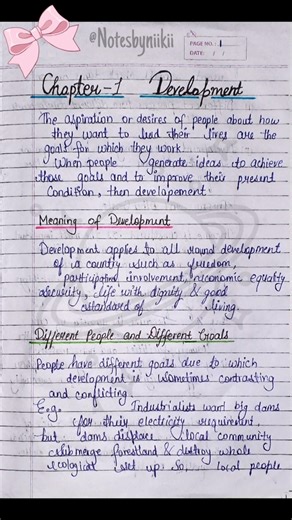 @Notesbyniikii
PAGE NO. 1
DATE: / /
Chapter-1 Development
The aspiration or desires of people about how
they want to lead their lives are the
goals for which they work.
When people generate ideas to achieve
those goals and to improve their present
Condition, then developement.
Meaning of Development
Development applies to all round development
of a country such as freedom,
participation involvement, economic equality
security, life with dignity & good
standard of living.
Different People and Different Goals
People have different goals due to which
development is sometimes contrasting
and conflicting.
E.g. Industrialists want big dams
for their electricity requirement,
but dams displace local community
submerge forestland & destroy whole
ecological set up so, local people